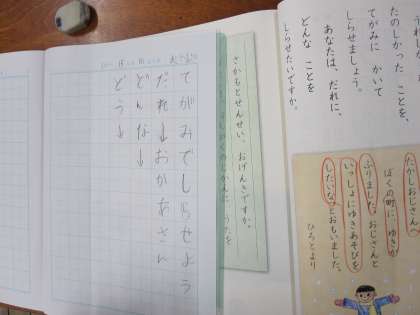 たのしかった ことを、
てがみに かいて
しらせましょう。
あなたは、だれに、
どんな ことを
しらせたいですか。
さかもとせんせい、おげんきですか。
うたを
たかしおじさんへ
ぼくの町に、ゆきが
ふりました。おじさんと
いっしょにゆきあそびを
したいなとおもいました。
ひろとより
てがみでしらせよう
だれ→おかあさん
どんな→
どう→